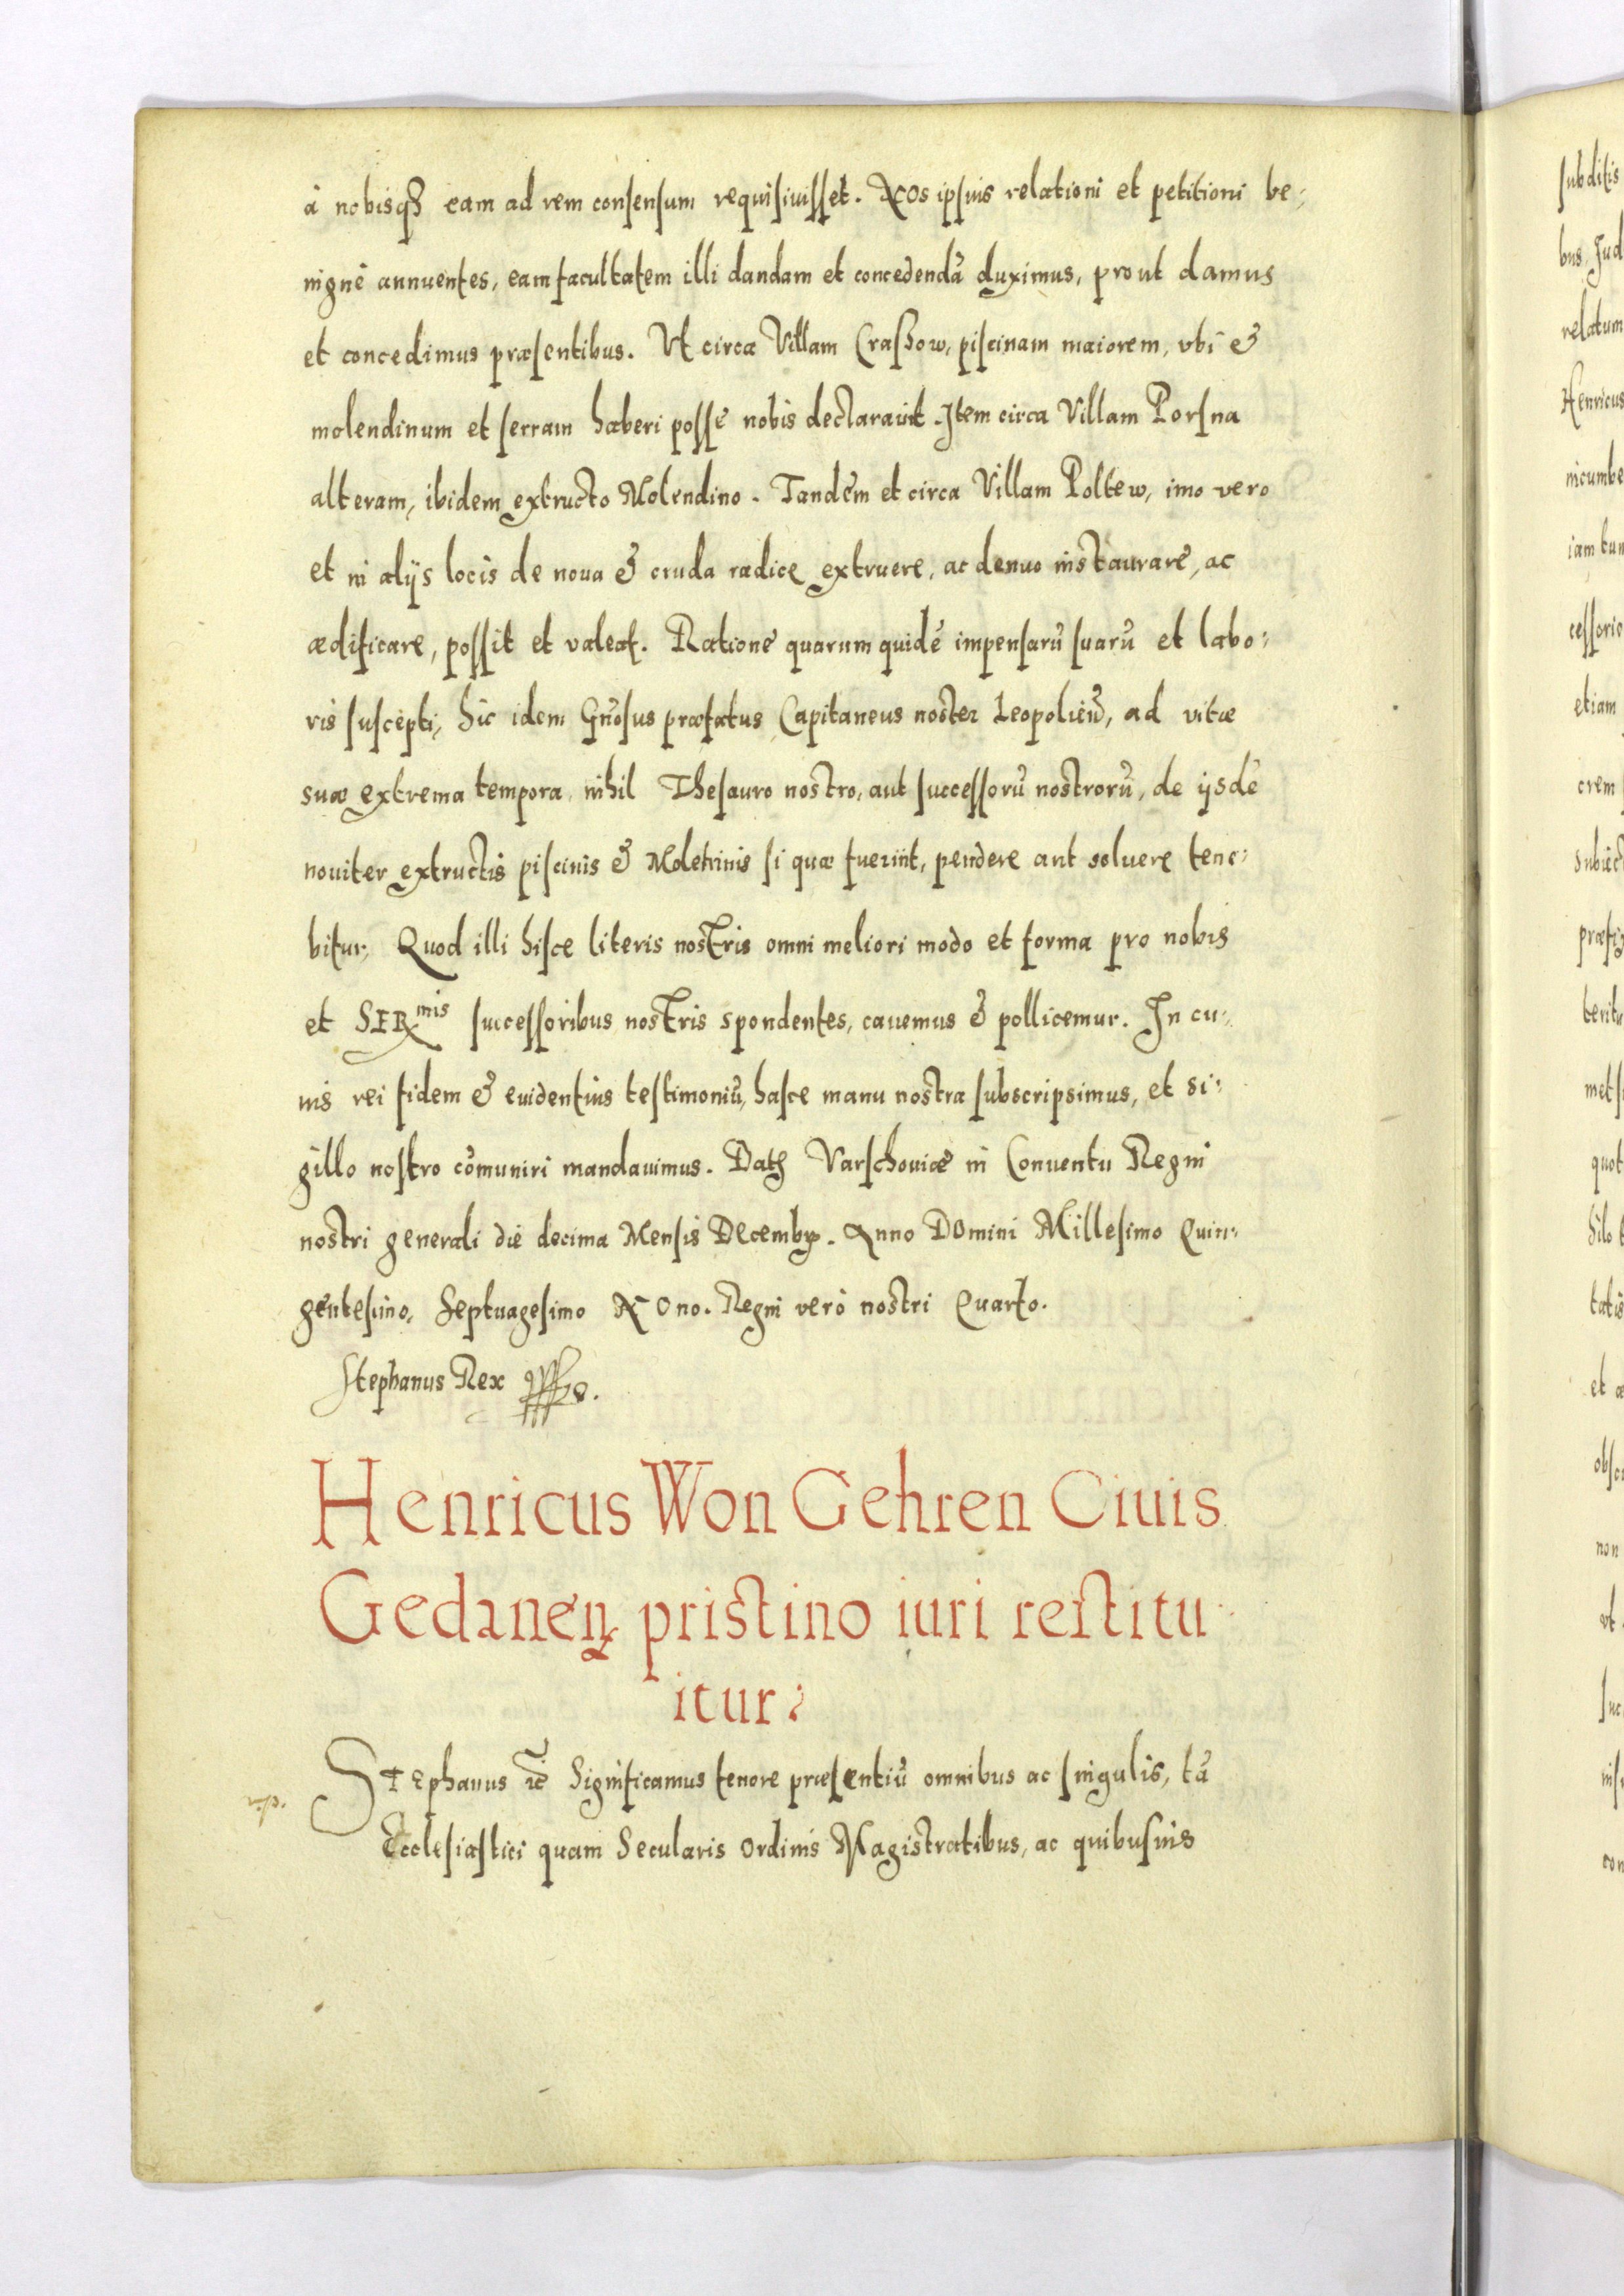 à nobisq₃ eam ad rem consensum requisiuisset. NOs ipsius relationi et petitioni be,
nigne annuentes, eam facultatem illi dandam et concedendã duximus, prout damus
et concedimus præsentibus. Vt circa Villam Crassow, piscinam maiorem, vbi &
molendinum et serram haberi posse nobis declarauit. Item circa Villam Porsna
alteram, ibidem extructo Molendino. Tandem et circa Villam Poltew, imo vero
et in alijs locis de noua & cruda radice extruere, ac denuo instaurare, ac
ædificare, possit et valeat. Ratione quarum quidẽ impensarũ suarũ et labo:
ris suscepti, hic idem Gñosus præfatus Capitaneus noster Leopolieñ, ad vitæ
suæ extrema tempora, nihil Thesauro nostro, aut successorũ nostrorũ, de ijsdẽ
nouiter extructis piscinis & Moletrinis si quæ fuerint, pendere aut soluere tene:
bitur, Quod illi hisce literis nostris omni meliori modo et forma pro nobis
et SERmis successoribus nostris spondentes, cauemus & pollicemur. In cu,
ius rei fidem & euidentius testimoniũ, hasce manu nostra subscripsimus, et si:
gillo nostro cõmuniri mandauimus. Datꝫ Varschouiæ in Conuentu Regni
nostri generali die decima Mensis Decembꝶ. Anno DOmini Millesimo Quin:
gentesimo, Septuagesimo NOno. Regni verò nostri Quarto.
Stephanus Rex
Henricus Won Gehren Ciuis
Gedaneñ pristino iuri restitu
itur:
STEphanus ⁊c̃ Significamus tenore præsentiũ omnibus ac singulis, tã
Ecclesiastici quam Secularis Ordinis Magistratibus, ac quibusuis